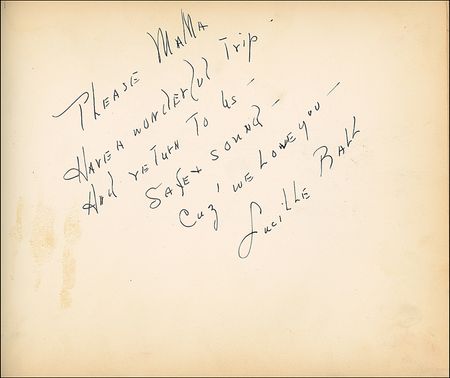 Please Mama
Have a wonderful trip.
And return to us -
Safe + sound -
Cuz' we love you -
Lucille Ball